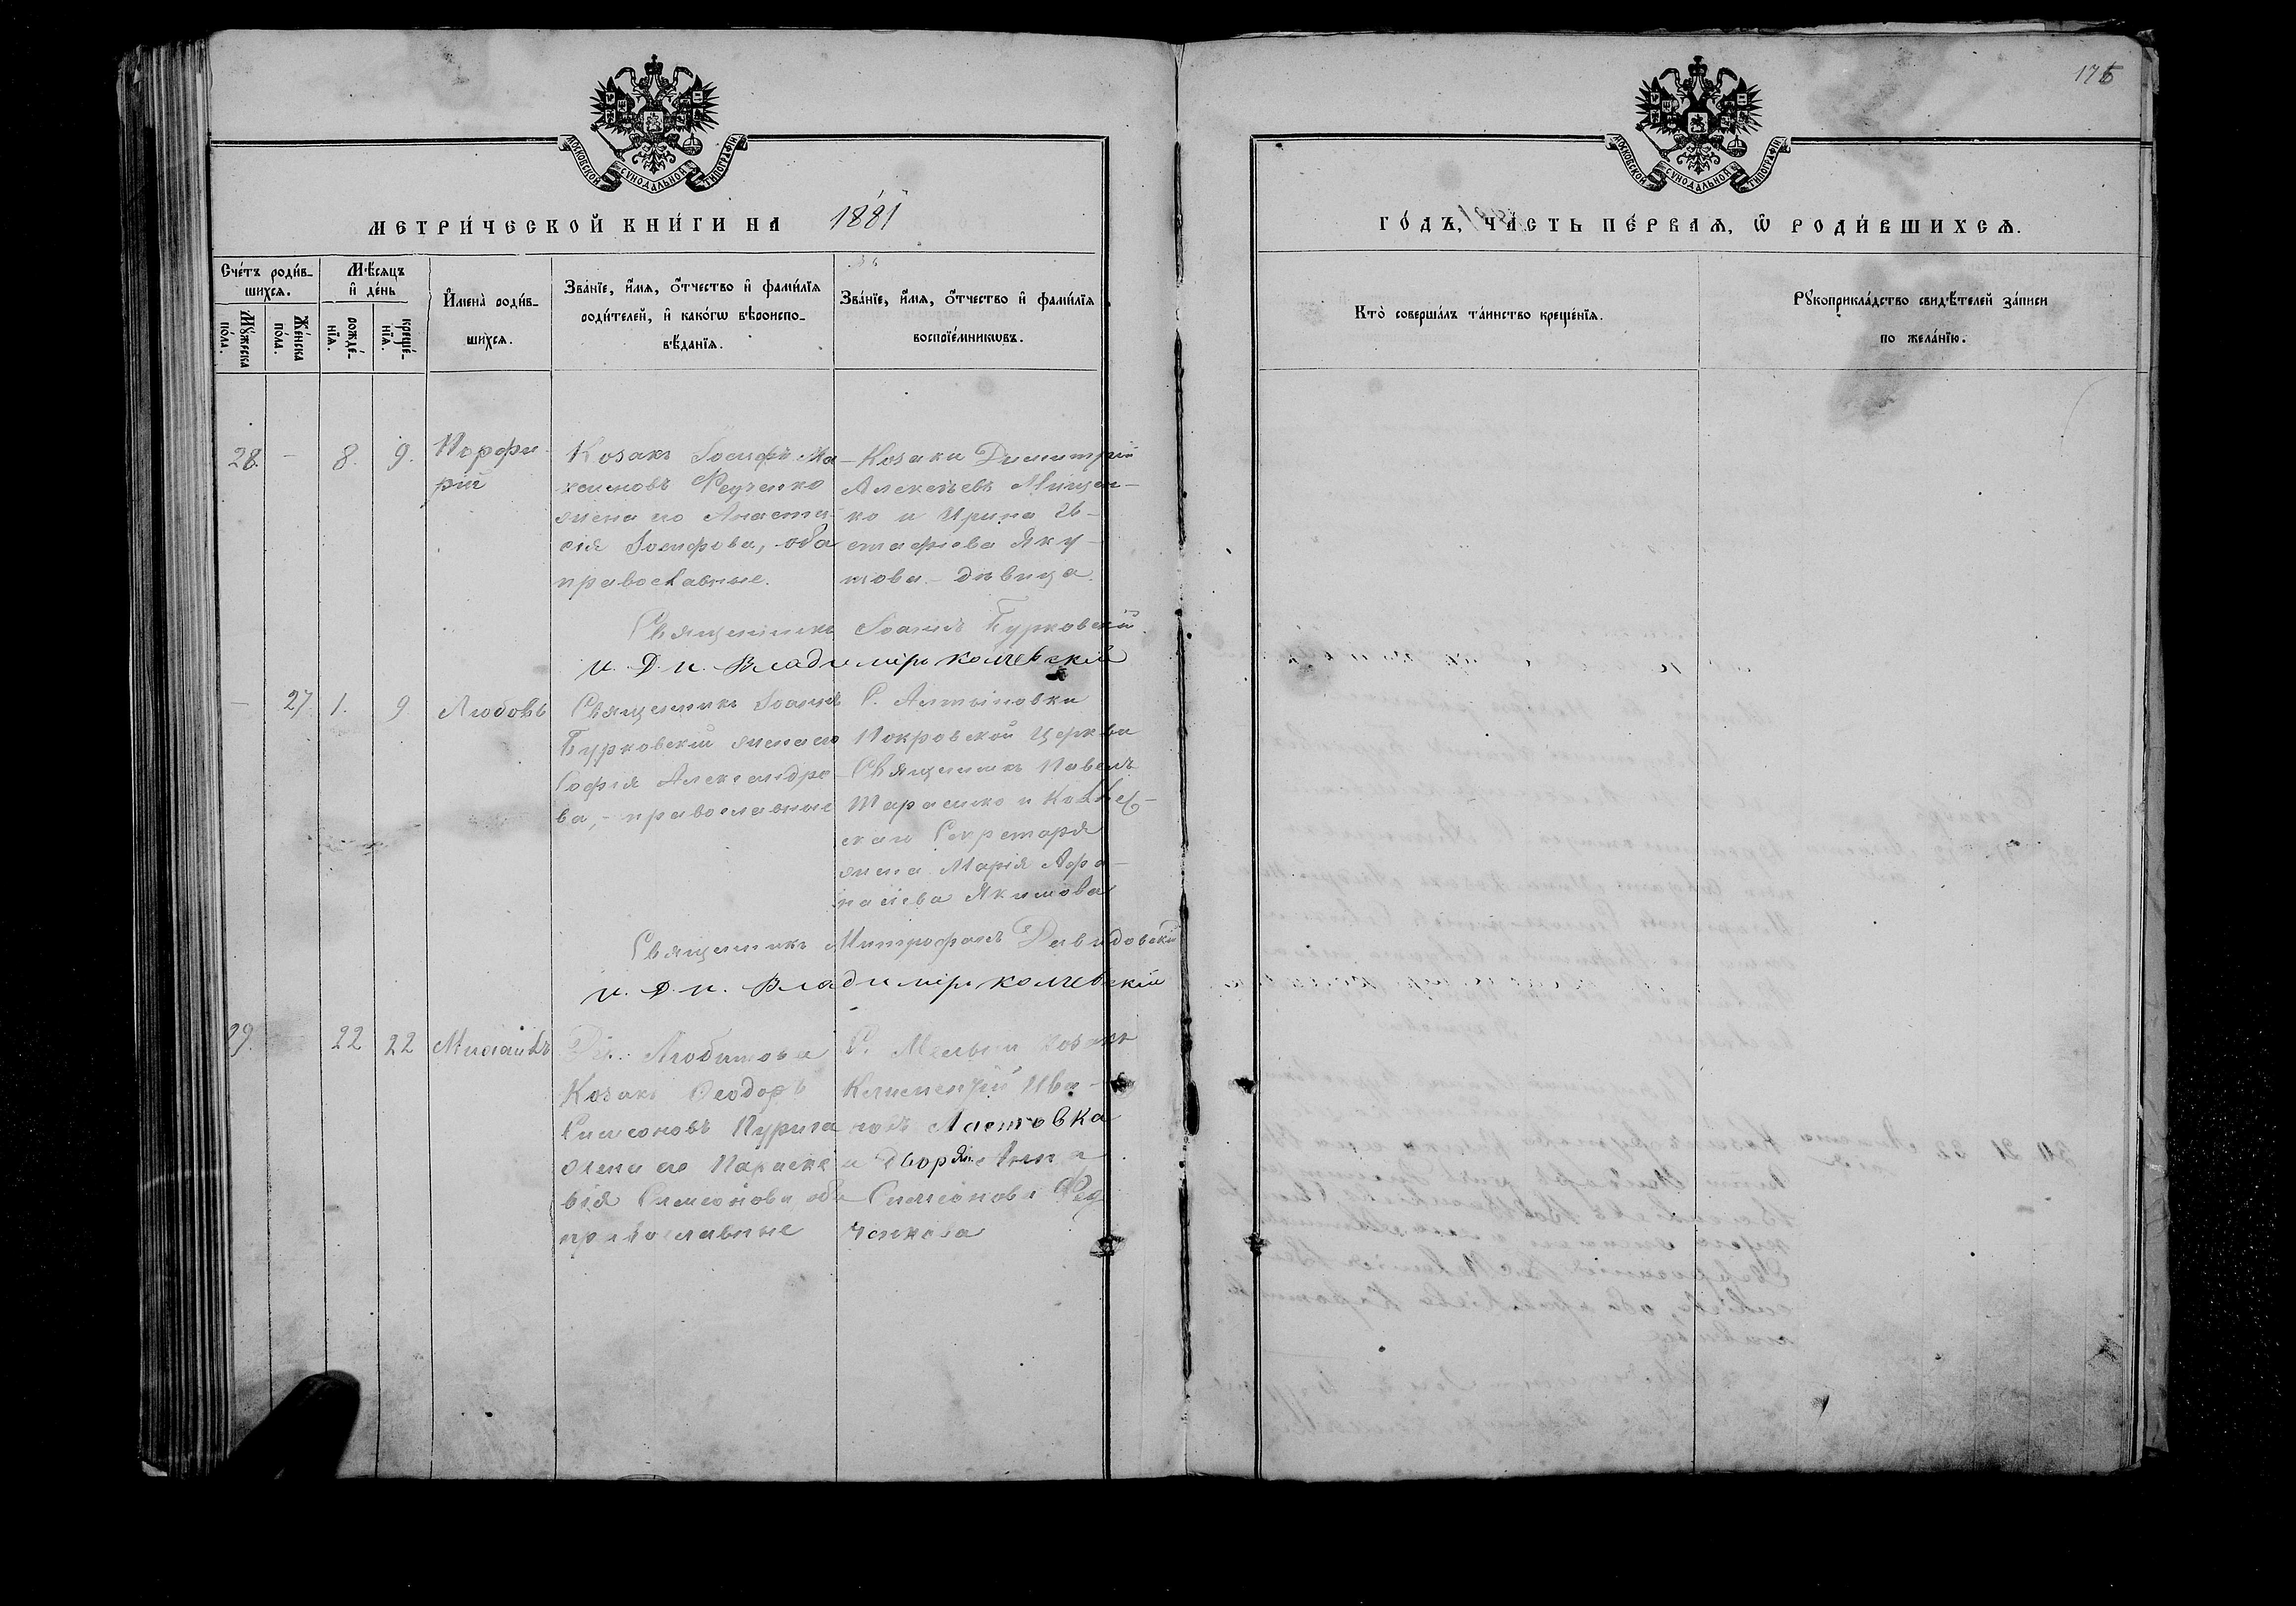 175
МОСКОВСКОЙ СѴНОДАЛЬНОЙ ТИПОГРАФІИ
МОСКОВСКОЙ СѴНОДАЛЬНОЙ ТИПОГРАФІИ
МЕТРИ́ЧЕСКОЙ КНИ́ГИ НА 1881
ГО́ДЪ, ЧА́СТЬ ПЕ́РВАѦ, Ѿ РОДИ́ВШИХСѦ.
Сче́тъ роди́в-
шихсѧ.
Мꙋ́жеска
по́ла.
Же́нска
по́ла.
Мѣ́сѧцъ
и҆ де́нь
рожде́-
нїѧ.
креще́-
нїѧ.
И҆мена̀ роди́в-
шихсѧ.
Зва́нїе, и҆́мѧ, о҆́тчество и҆ фами́лїѧ
роди́телей, и҆ како́гѡ вѣроиспо-
вѣ́данїѧ.
Зва́нїе, и҆́мѧ, о҆́тчество и҆ фами́лїѧ
воспрїе́мникѡвъ.
Кто̀ соверша́лъ та́инство креще́нїѧ.
Рꙋкоприкла́дство свидѣ́телей за́писи
по жела́нїю.
28. - 8. 9.
Порфи-
рій
Козакъ Іосифъ Ма-
ксимовъ Федченко
жена его Анаста-
сія Іосифова, оба
православные.
Козаки Димитрій
Алексѣевъ Мищен-
ко и Ирина Ев-
стафіева Яку-
това - дѣвица.
Священникъ Іоаннъ Бурковскій
и. д. п. Владиміръ Колчевскій
- 27. 1. 9
Любовь
Священникъ Іоаннъ
Бурковскій жена его
Софія Александро-
ва, - православные
С. Алтыновки
Покровской Церкви
Священникъ Павелъ
Тарасенко и Коллеж-
скаго Секретаря
жена Марія Афа-
насіева Якимова
Священникъ Митрофанъ Давидовскій
и. д. п. Владиміръ Колчевскій
29. 22 22
Михаилъ
Козакъ Ѳеодоръ
Симеоновъ
жена его Параске-
вія Симеонова оба
православные
козакъ
Климентій Ива-
новъ Ластовка
и Дворян. Анна
Симеонова Фед-
ченкова